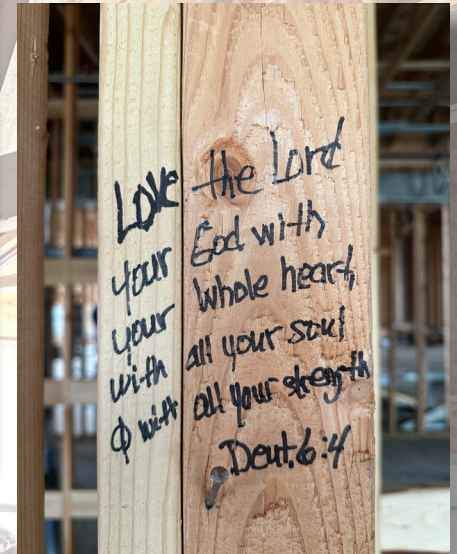 Love the Lord
your God with
your whole heart,
with all your soul
& with all your strength
Deut. 6:4